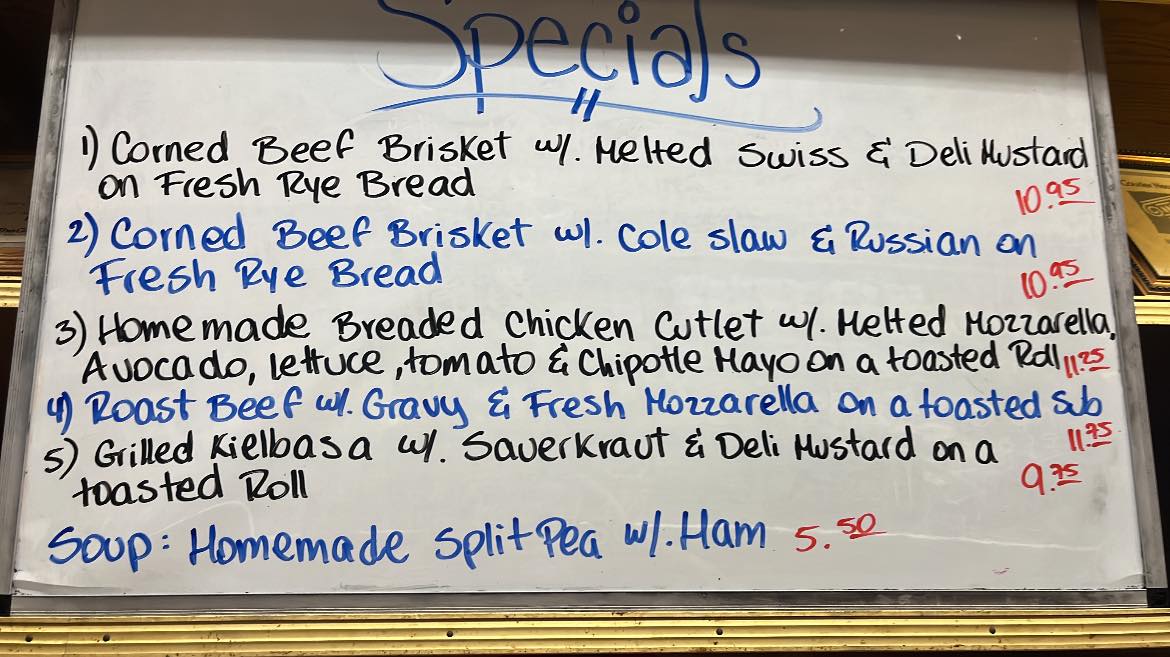 Specials
1) Corned Beef Brisket w/. Melted Swiss & Deli Mustard
on Fresh Rye Bread 10.95
2) Corned Beef Brisket w/. Cole slaw & Russian on
Fresh Rye Bread 10.95
3) Homemade Breaded Chicken Cutlet w/. Melted Mozzarella,
Avocado, lettuce, tomato & Chipotle Mayo on a toasted Roll 11.25
4) Roast Beef w/. Gravy & Fresh Mozzarella on a toasted Sub
11.75
5) Grilled Kielbasa w/. Sauerkraut & Deli Mustard on a
toasted Roll 9.75
Soup: Homemade Split Pea w/. Ham 5.50